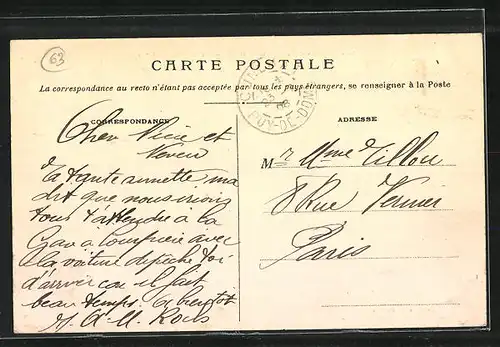 63
CARTE POSTALE
La correspondance au recto n'étant pas acceptée par tous les pays étrangers, se renseigner à la Poste
PUY-DE-DOME
CORRESPONDANCE
ADRESSE
et
Neveu
la tante annette ma
dit que nous irions
tous t'attendre à la
Gare a avec
la voiture depeche toi
d'arriver car il fait
beau temps. a bientot
M r Mme Tillou
8 Rue Vernier
Paris